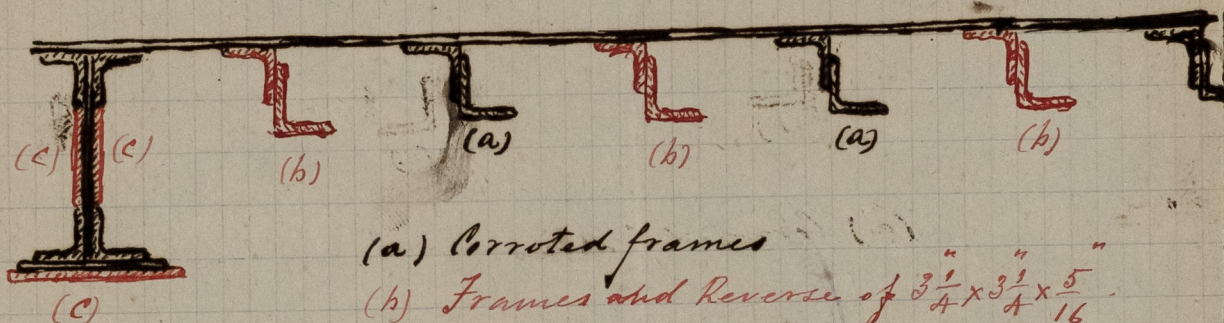 (c) (c) (b) (a) (b) (a) (b)
(a) Corroted frames
(c) (b) Frames and Reverse of 3 1/4" x 3 1/4" x 5/16"